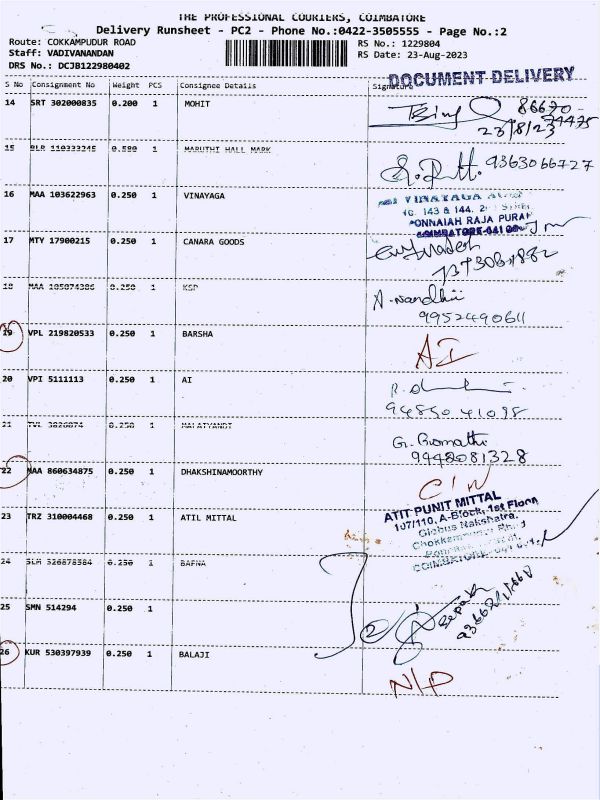 THE PROFESSIONAL COURIERS, COIMBATORE
Delivery Runsheet - PC2 - Phone No.:0422-3505555 - Page No.:2
Route: COKKAMPUDUR ROAD RS No.: 1229804
Staff: VADIVANANDAN RS Date: 23-Aug-2023
DRS No.: DCJB122980402
DOCUMENT DELIVERY
S No Consignment No Weight PCS Consignee Details Signature
14 SRT 302000835 0.200 1 MOHIT
86670-
74475
23/8/23
15 BLR 110333245 0.500 1 MARUTHI HALL MARK
9363066727
16 MAA 103622963 0.250 1 VINAYAGA
VINAYAGA
143 & 144, 2
PONNAIAH RAJA PURAM
COIMBATORE-641 001
17 MTY 17900215 0.250 1 CANARA GOODS
18 MAA 105074386 0.250 1 KSP
A. Nandhii
9952490611
19 VPL 219820533 0.250 1 BARSHA
AI
20 VPI 5111113 0.250 1 AI
9485041098
21 TVL 3826874 0.250 1 MALAIYANDI
9448081328
22 MAA 860634875 0.250 1 DHAKSHINAMOORTHY
C/N
23 TRZ 310004468 0.250 1 ATIL MITTAL
ATIT PUNIT MITTAL
107/110, A-Block, 1st Floor,
Globus Nakshatra,
COIMBATORE
24 SLM 326878584 0.250 1 BAFNA
25 SMN 514294 0.250 1
Deepak
26 KUR 530397939 0.250 1 BALAJI
N/P